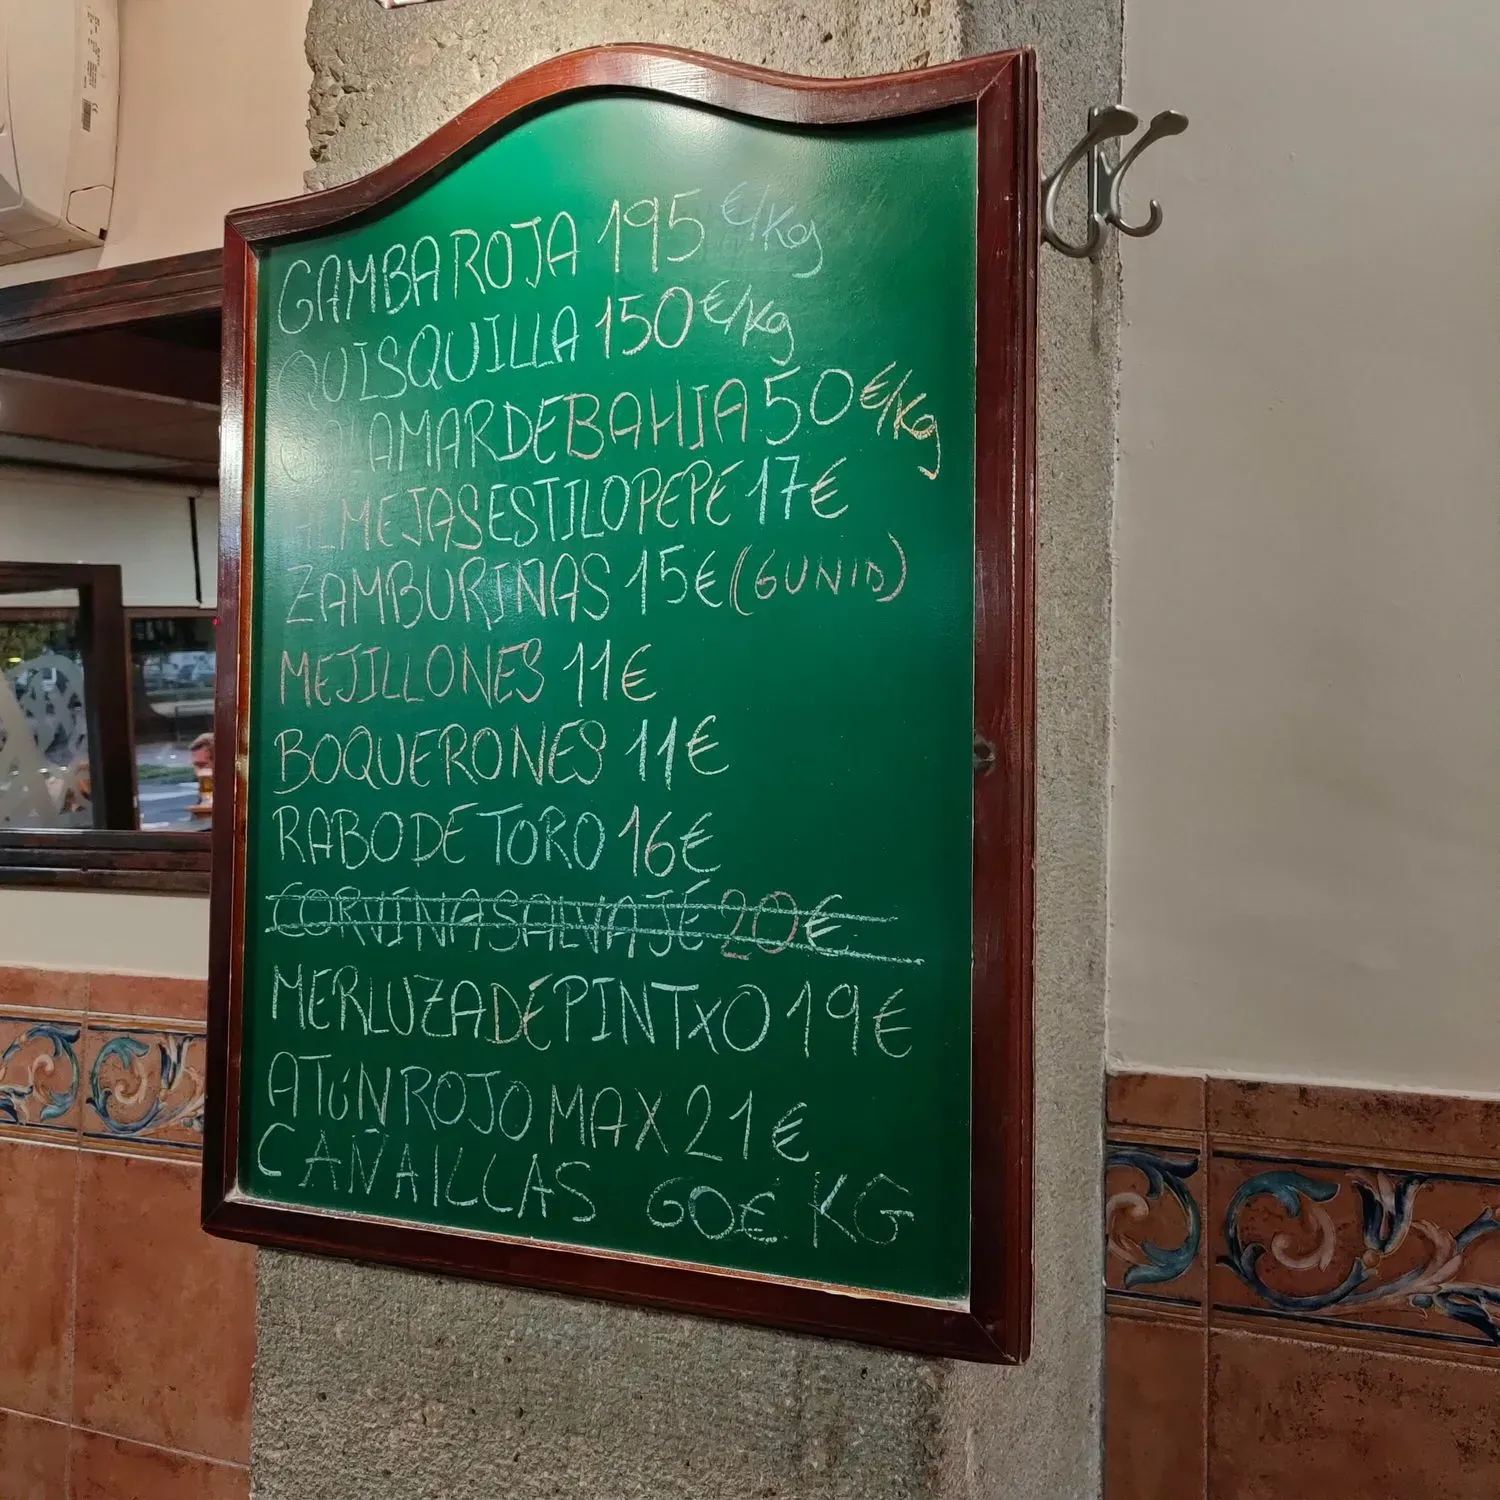 GAMBA ROJA 195 €/Kg
QUISQUILLA 150 €/Kg
CALAMAR DE BAHIA 50 €/Kg
ALMEJAS ESTILO PEPE 17€
ZAMBURIÑAS 15€ (6 UNID)
MEJILLONES 11€
BOQUERONES 11€
RABO DE TORO 16€
CORVINA SALVAJE 20€
MERLUZA DE PINTXO 19€
ATÚN ROJO MAX 21€
CAÑAILLAS 60€ KG